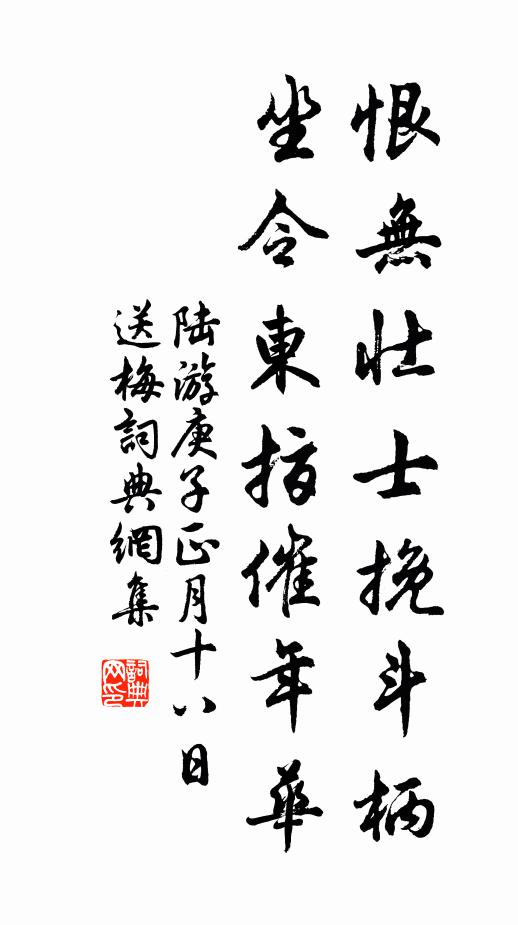 恨無壯士挽斗柄
坐令東指催年華
陸游庚子正月十八日
送梅詞典網集
詞典网印